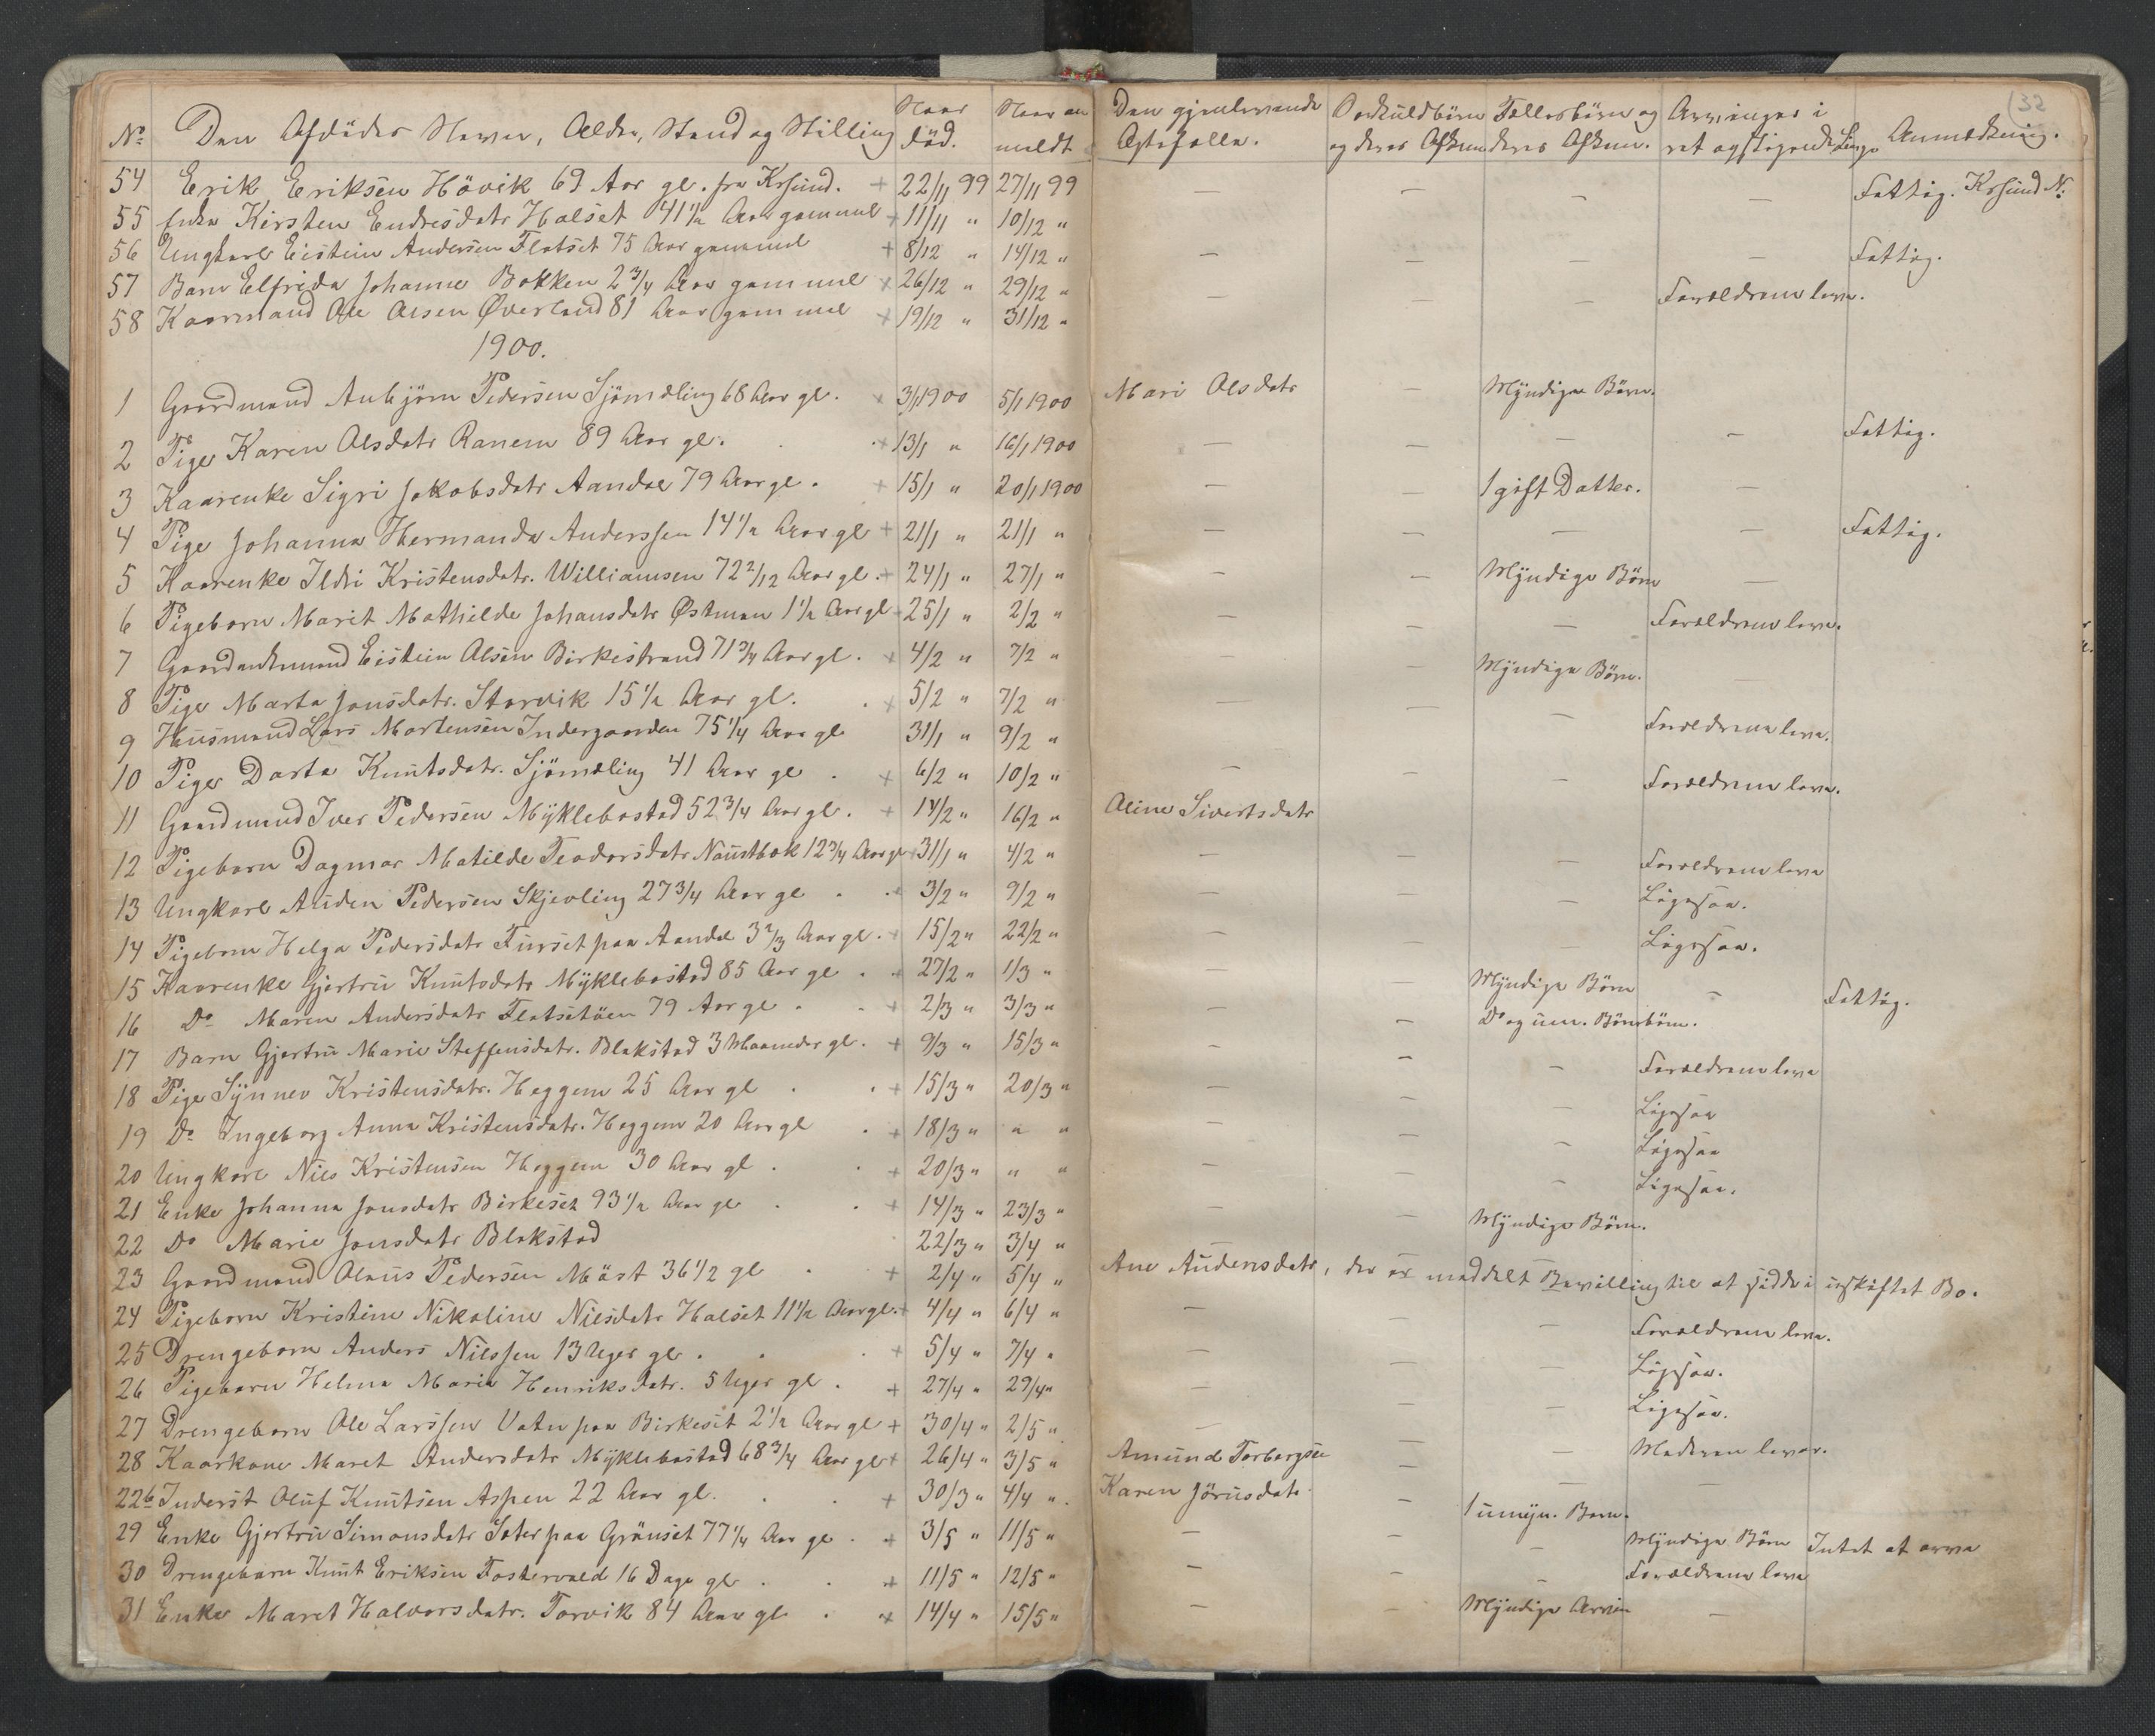 32
No Den Afdødes Navn, Alder, Stand og Stilling Naar død. Naar anmeldt Den gjenlevende Ægtefælle. Særkuldbørn og deres Afkom Fællesbørn og deres Afkom. Arvinger i ret opstigende Linje Anmærkning.
54 Erik Eriksen Hövik 69 Aar gl. fra Krsund. + 22/11 99 27/11 99 — — — — Fattig. Krsund N.
55 Kirsten Endresdatr Halset 41 1/2 Aar gammel + 11/11 " 10/12 "
56 Ungkarl Eistein Andersen Flatset 75 Aar gammel + 8/12 " 14/12 " — — — — Fattig.
57 Barn Elfrida Johanne Bakken 2 3/4 Aar gammel + 26/12 " 29/12 " — — — Forældrene leve.
58 Kaarmand Ole Olsen Øverland 81 Aar gammel + 19/12 " 31/12 "
1900.
1 Gaardmand Anbjörn Pedersen Sjömæling 68 Aar gl. + 3/1 1900 5/1 1900 Mari Olsdatr — Myndige Börn.
2 Pige Karen Olsdatr Ranem 89 Aar gl. + 13/1 " 16/1 1900 — — — — Fattig.
3 Kaarenke Sigri Jakobsdatr Aandal 79 Aar gl. + 15/1 " 20/1 1900 — — 1 gift Datter. —
4 Pige Johanna Hermanda Anderssen 14 1/2 Aar gl + 21/1 " 21/1 " — — — — Fattig.
5 Kaarenke Ildri Kristensdatr. Williamsen 72 2/12 Aar gl. + 24/1 " 27/1 " — — Myndige Börn —
6 Pigebarn Marit Mathilde Johansdatr Østman 1 1/2 Aar gl 25/1 " 2/2 " — — — Forældrene leve.
7 Gaardmand Eistein Olsen Birkestrand 71 3/4 Aar gl. + 4/2 " 7/2 " — — Myndige Börn. —
8 Pige Marta Jonsdatr. Storvik 15 1/2 Aar gl. + 5/2 " 7/2 " — — — Forældrene leve.
9 Husmand Lars Mortensen Indergaarden 75 1/4 Aar gl 31/1 " 9/2 "
10 Pige Darta Knutsdatr. Sjömæling 41 Aar gl. + 6/2 " 10/2 " — — — Forældrene leve.
11 Gaardmand Iver Pedersen Myklebostad 52 3/4 Aar gl. + 14/2 " 16/2 " Oline Sivertsdatr
12 Pigebarn Dagmar Matilde Teodorsdatr Naustbak 12 3/4 Aar gl + 31/1 " 4/2 " — — — Forældrene leve
13 Ungkarl Auden Pedersen Skjevling 27 3/4 Aar gl. + 3/2 " 9/2 " — — — Ligesaa.
14 Pigebarn Helga Pedersdatr Furset paa Aandal 3 2/3 Aar gl. + 15/2 " 22/2 " — — — Ligesaa.
15 Kaarenke Gjertru Knutsdatr Myklebostad 85 Aar gl. + 27/2 " 1/3 " — — Myndige Börn — Fattig.
16 Do Maren Andersdatr Flatsetöen 79 Aar gl. + 2/3 " 3/3 " — — Do og um. Börnebörn.
17 Barn Gjertru Marie Steffensdatr. Blakstad 3 Maaneder gl. + 9/3 " 15/3 " — — — Forældrene leve
18 Pige Synnev Kristensdatr. Heggem 25 Aar gl. + 15/3 " 20/3 " — — — Ligesaa
19 Do Ingeborg Anna Kristensdatr. Heggem 20 Aar gl. + 18/3 " " " — — — Ligesaa
20 Ungkarl Nils Kristensen Heggem 30 Aar gl. + 20/3 " " " — — — Ligesaa.
21 Enke Johanna Jonsdatr Birkeset 93 1/2 Aar gl. + 14/3 " 23/3 " — — Myndige Börn.
22 Do Marie Jonsdatr Blakstad 22/3 " 3/4 "
23 Gaardmand Olaus Pedersen Mäst 36 1/2 gl. + 2/4 " 5/4 " Ane Audensdatr, der er meddelt Bevilling til at sidde i uskiftet Bo.
24 Pigebarn Kristine Nikoline Nilsdatr Halset 11 1/2 Aar gl. + 4/4 " 6/4 " — — — Forældrene leve.
25 Drengebarn Anders Nilssen 13 Uger gl. + 5/4 " 7/4 " — — — Ligesaa.
26 Pigebarn Helma Maria Henriksdatr. 5 Uger gl. + 27/4 " 29/4 " — — — Ligesaa.
27 Drengebarn Ole Larssen Vatn paa Birkeset 2 1/2 Aar gl + 30/4 " 2/5 " — — — Moderen lever.
28 Kaarkone Maret Andersdatr Myklebostad 68 3/4 Aar gl + 26/4 " 3/5 " Amund Torbergsen — — —
22b Inderst Oluf Knutsen Aspen 22 Aar gl. + 30/3 " 4/4 ". Karen Jörusdatr. — 1 umyn. Barn.
29 Enke Gjertru Simonsdatr Sæter paa Grönset 77 1/4 Aar gl. + 3/5 " 11/5 " — — — Myndige Börn Intet at arve
30 Drengebarn Knut Eriksen Fostervold 16 Dage gl. + 11/5 " 12/5 " — — — Forældrene leve
31 Enke Maret Halvorsdatr. Torvik 84 Aar gl. + 14/4 " 15/5 " — — Myndige Arvin —